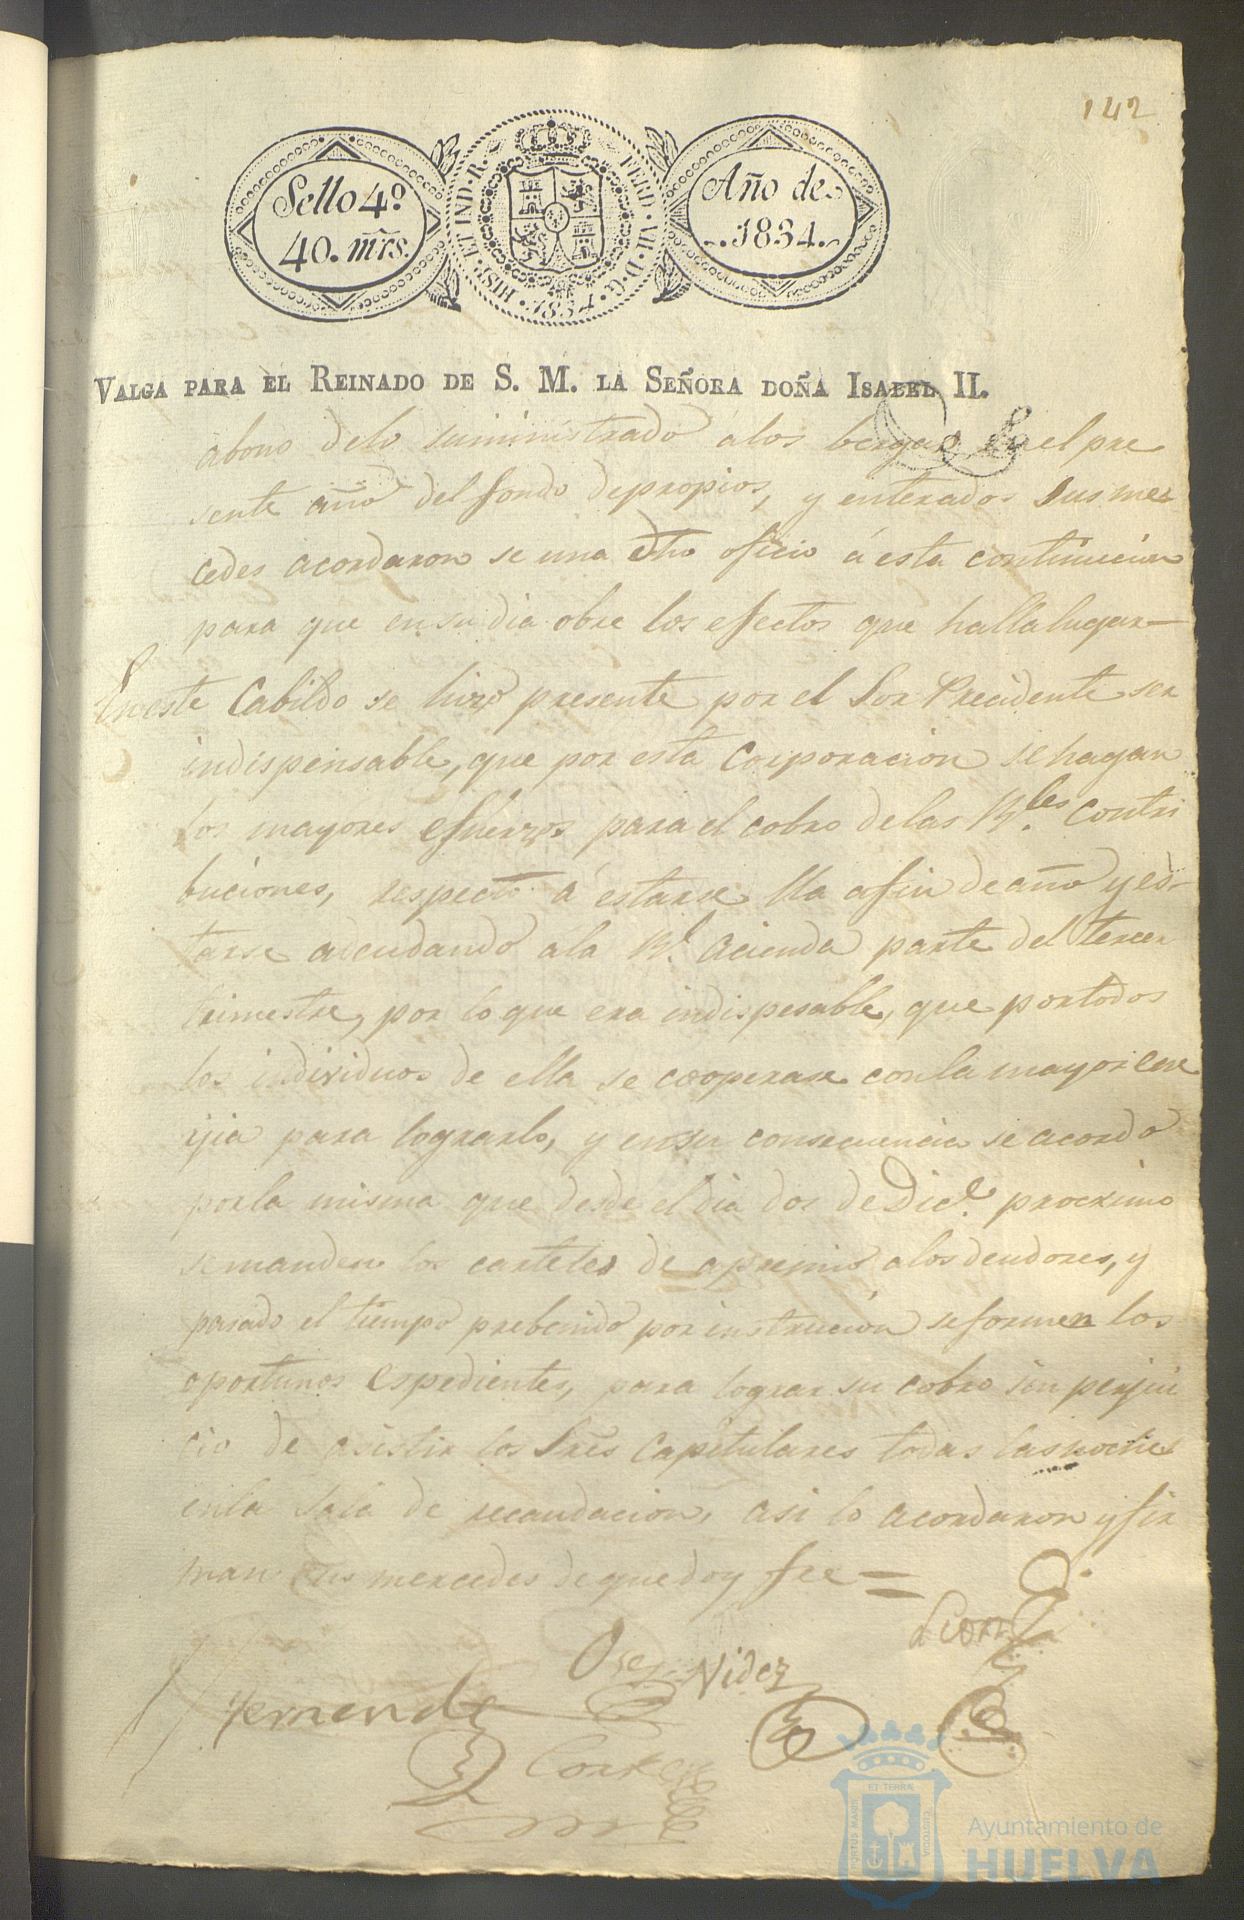 142
Sello 4º
40. mrs.
HISP. ET IND. R. FERD. VII. D. G. 1834.
Año de
1834.
VALGA PARA EL REINADO DE S. M. LA SEÑORA DOÑA ISABEL II.
abono delo suministrado alos en el pre
sente año del fondo depropios, y enterados Sus mer
cedes acordaron se una dho oficio á esta continucion
para que en su dia obre los efectos que halla lugar—
En este Cabildo se hizo presente por el Sor Precidente ser
indispensable, que por esta Corporacion se hagan
los mayores esfuerzos para el cobro de las Rles contri
buciones, respecto á estarse lla afin de año y es-
tarse adeudando ala Rl acienda parte del tercer
trimestre, por lo que era indispesable, que portodos
los individuos de ella se cooperase conla mayor ener
ijia para lograrlo, y ensu consecuencia se acordo
porla misma que desde el dia dos de Dice procximo
se manden los carteles de apremio alos deudores, y
pasado el tiempo prebenido por instrucion se formen los
oportunos espedientes, para lograr su cobro sin perjui
cio de asistir los Sres Capitulares todas las noches
enla sala de recaudacion, asi lo acordaron y fir
man Sus mercedes de que doy fee =
Leon
Nidez
Hernandz
Ayuntamiento de
HUELVA